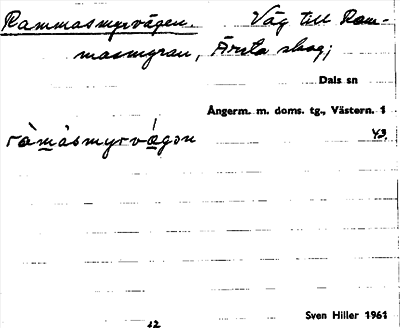 Rammasmyrvägen. Väg till Ram-
masmyran, Ärsta skog;
Dals sn
Ångerm. m. doms. tg., Västern. 1
ràmåsmyrvágən 43.
Sven Hiller 1961
12